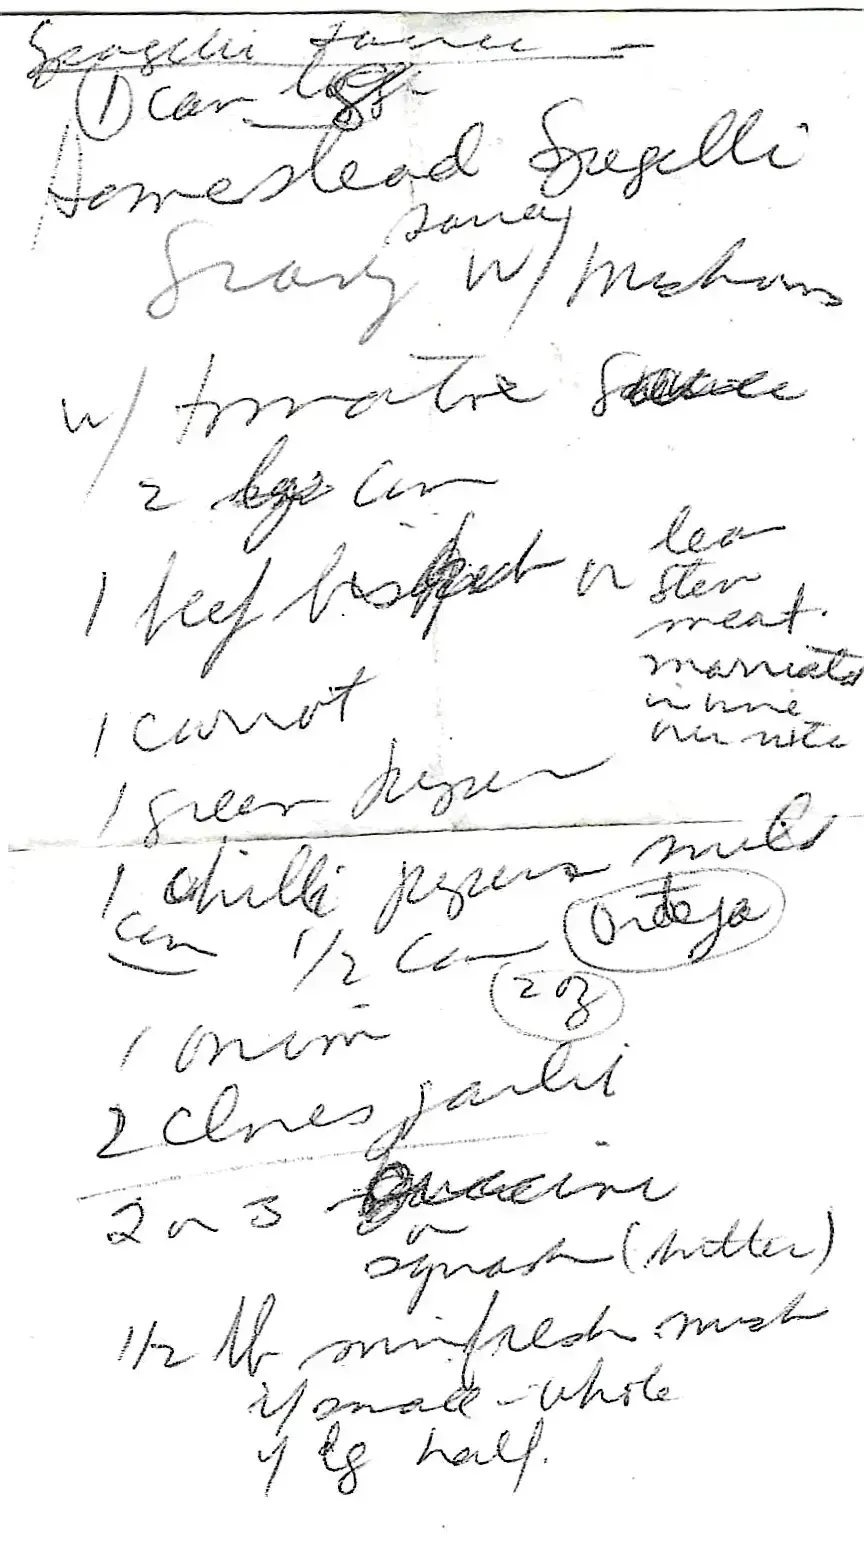 Spagelli Sauce
① can lgge
Homestead Spagelli
sauce
Gravy w/ Mushroms
w/ tomatoe Sauce
2 lge Can
1 beef brisket or lean
stew
meat.
marniate
in wine
over nite
1 carrot
1 green pepper
1 chilli peppers mild
can 1/2 Can Ortega
2 oz
1 onion
2 cloves garlic
2 or 3 zuccini
or
squash (butter)
1/2 lb fresh mush
if small - whole
if lg half.